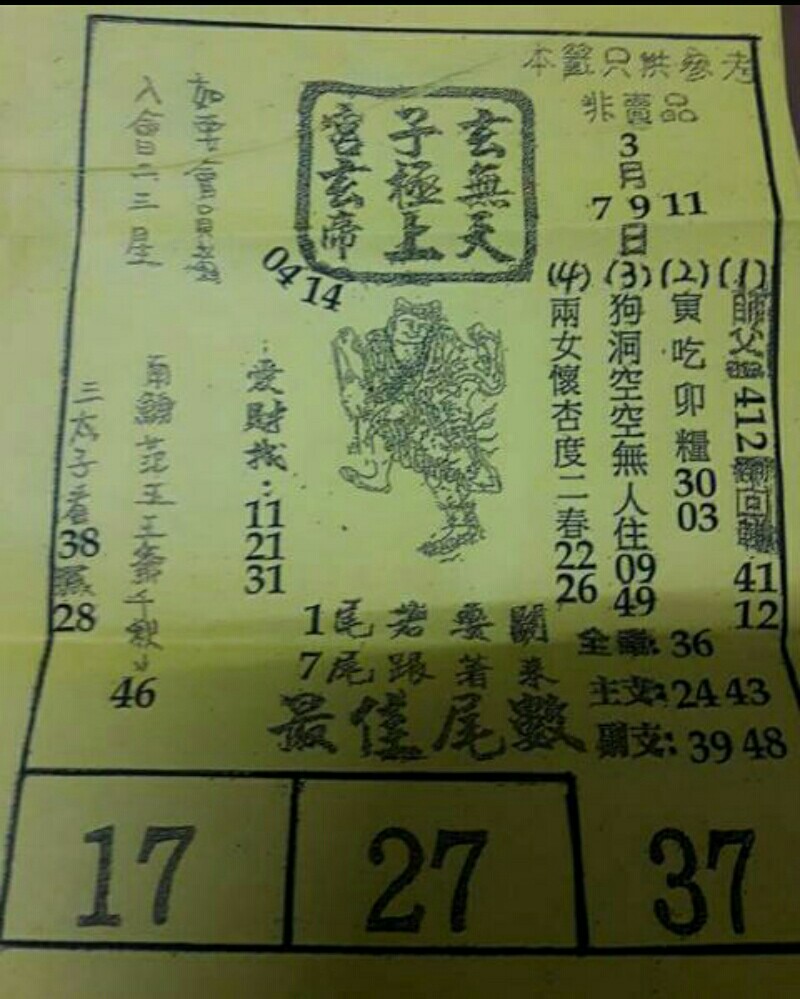 本籤只供參考
非賣品
3
月
7 9 11
日
玄無天
子極上
宮玄帝
04 14
入會二三星
(1)師父 412
41
12
(2)寅吃卯糧
30
03
(3)狗洞空空無人住
09
49
(4)兩女懷杏度二春
22
26
愛財找:
11
21
31
三太子
38
28
46
1尾若要開
7尾跟著來
最佳尾數
全車: 36
主支: 24 43
39 48
17
27
37